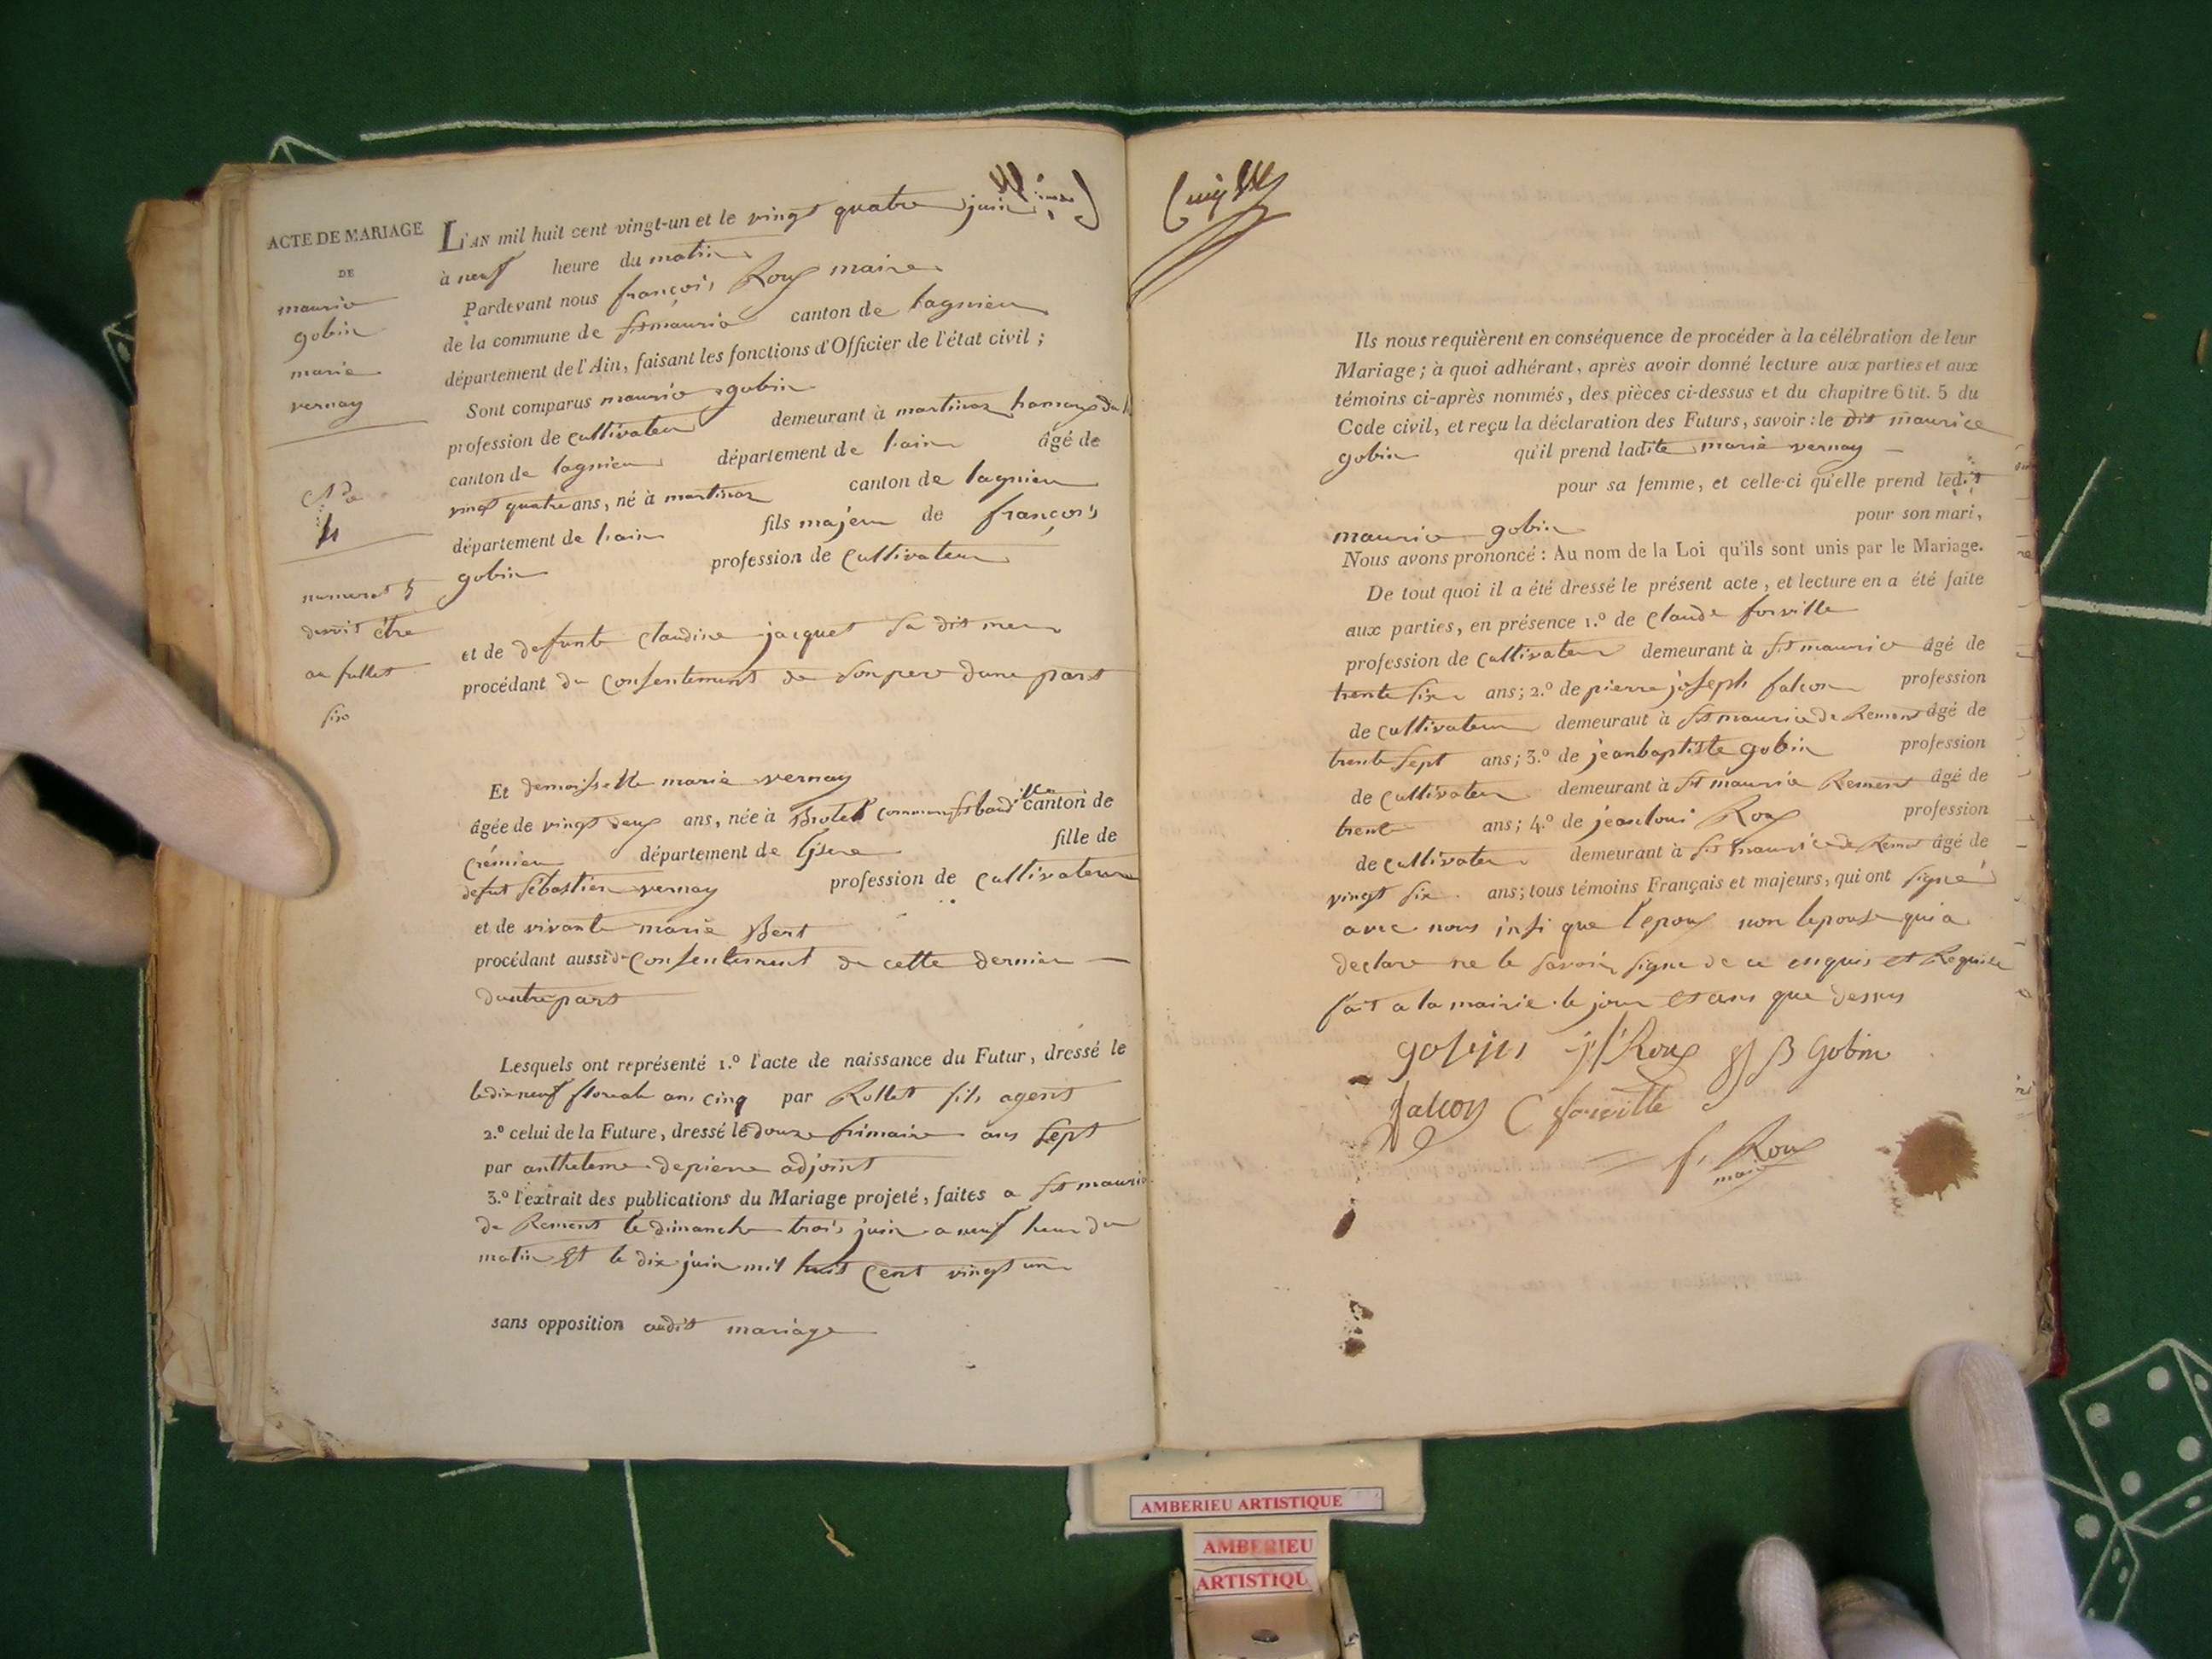 ACTE DE MARIAGE
DE
maurice
gobin
marie
vernay
numerot 5
devoit être
au fullet
six
L'AN mil huit cent vingt-un et le vingt quatre juin
à neuf heure du matin
Pardevant nous françois Roux maire
de la commune de st maurice canton de lagnieu
département de l'Ain, faisant les fonctions d'Officier de l'état civil ;
Sont comparus maurice gobin
profession de cultivateur demeurant à martinaz hamaux du
canton de lagnieu département de lain âgé de
vingt quatre ans, né à martinaz canton de lagnieu
département de lain fils majeur de françois
gobin profession de cultivateur
et de defunte claudine jacquet sa dit mere
procédant du consentement de son pere dune part
Et demoisselle marie vernay
âgée de vingt deux ans, née à Brotel commune st baudille canton de
Crémieu département de lisere fille de
defunt sébastien vernay profession de cultivateur
et de vivante marie Bert
procédant aussi de consentement de cette derniere
dautre part
Lesquels ont représenté 1.º l'acte de naissance du Futur, dressé le
le dix neuf floreale an cinq par Rollet fils agent
2.º celui de la Future, dressé le douze frimaire an sept
par antheleme depierre adjoint
3.º l'extrait des publications du Mariage projeté, faites a st maurice
de Remens le dimanche trois juin a neuf heur du
matin Et le dix juin mil huit cent vingt un
sans opposition audit mariage
Ils nous requièrent en conséquence de procéder à la célébration de leur
Mariage ; à quoi adhérant, après avoir donné lecture aux parties et aux
témoins ci-après nommés, des pièces ci-dessus et du chapitre 6 tit. 5 du
Code civil, et reçu la déclaration des Futurs, savoir : le dit maurice
gobin qu'il prend ladite marie vernay
pour sa femme, et celle-ci qu'elle prend ledit
maurice gobin pour son mari,
Nous avons prononcé : Au nom de la Loi qu'ils sont unis par le Mariage.
De tout quoi il a été dressé le présent acte, et lecture en a été faite
aux parties, en présence 1.º de Claude forville
profession de cultivateur demeurant à st maurice âgé de
trente six ans ; 2.º de pierre joseph falcon profession
de cultivateur demeurant à st maurice de Remens âgé de
trente sept ans ; 3.º de jean baptiste gobin profession
de cultivateur demeurant à st maurice Remens âgé de
trente ans ; 4.º de jean loui Roux profession
de cultivateur demeurant à st maurice de Remens âgé de
vingt six ans ; tous témoins Français et majeurs, qui ont signé
avec nous insi que l'epoux non lepouse qui a
declare ne le savoir signe de ce enquis et Requise
fait a la mairie le jour et ans que dessus
gobin jl Roux J B Gobin
falcon C forville
f. Roux
maire
AMBERIEU ARTISTIQUE
AMBERIEU
ARTISTIQU